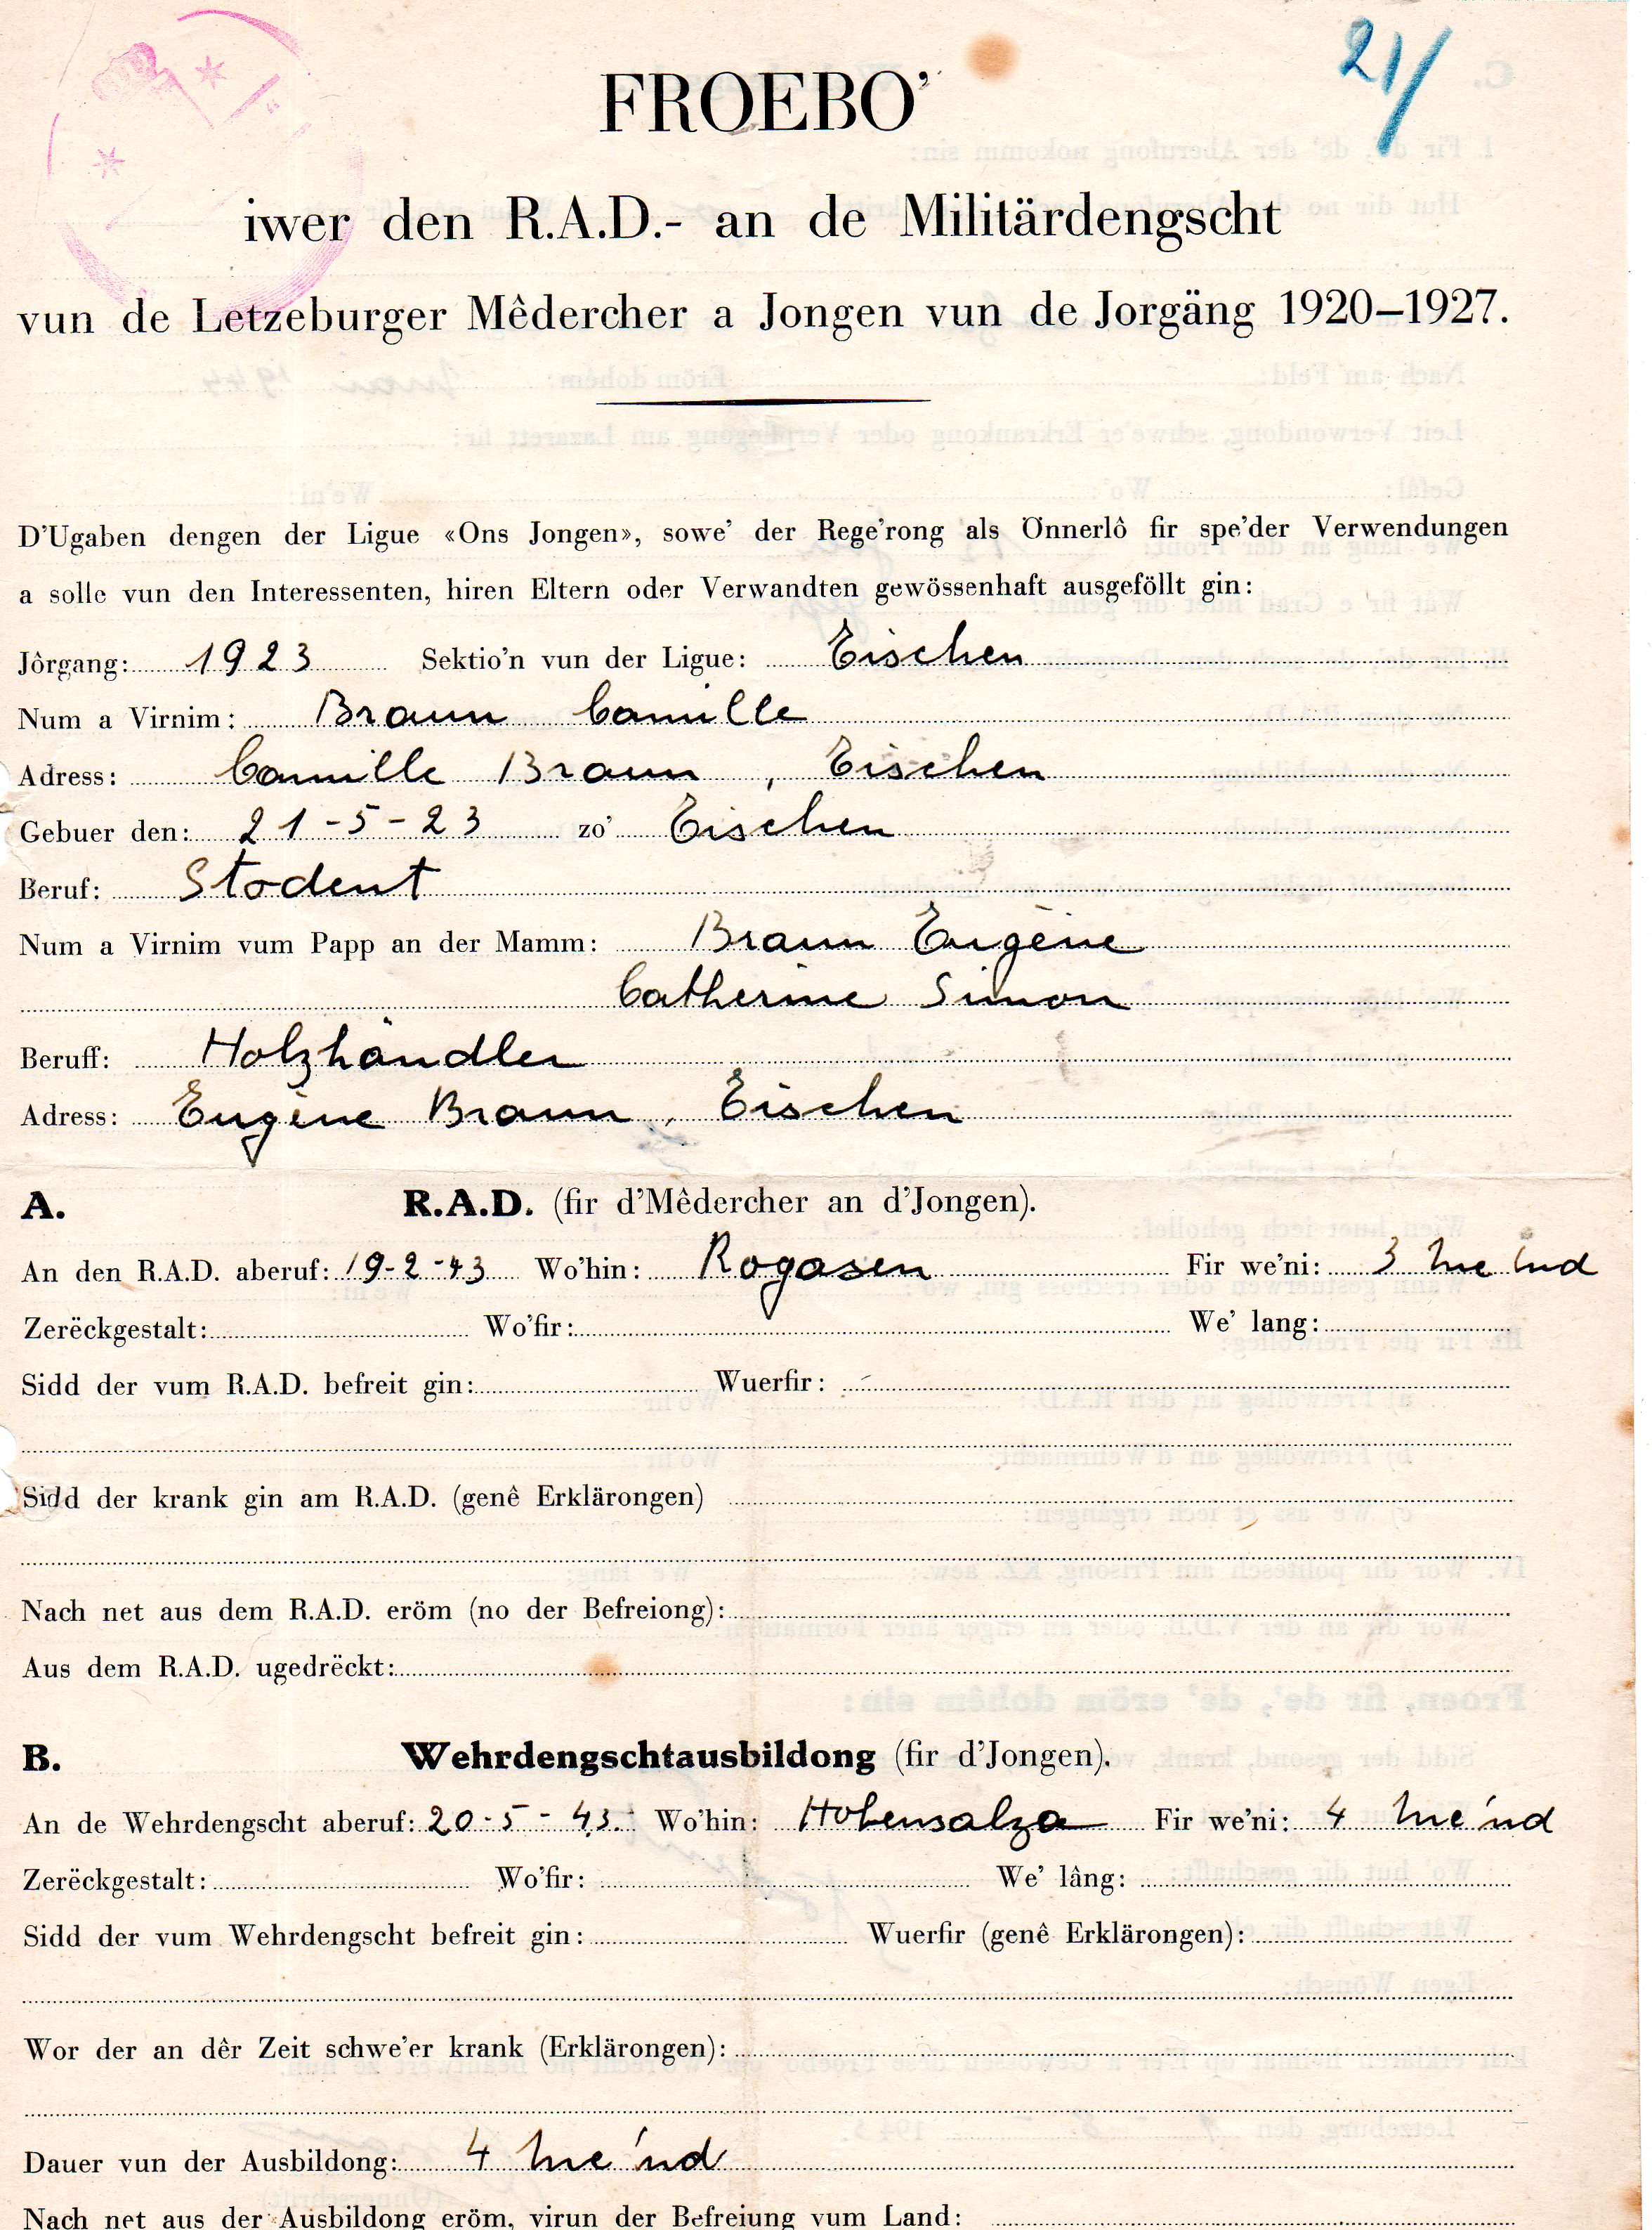 21/
FROEBO'
iwer den R.A.D.- an de Militärdengscht
vun de Letzeburger Mêdercher a Jongen vun de Jorgäng 1920–1927.
D'Ugaben dengen der Ligue «Ons Jongen», sowe' der Rege'rong als Önnerlô fir spe'der Verwendungen
a solle vun den Interessenten, hiren Eltern oder Verwandten gewössenhaft ausgeföllt gin:
Jôrgang: 1923 Sektio'n vun der Ligue: Eischen
Num a Virnim: Braun Camille
Adress: Camille Braun, Eischen
Gebuer den: 21-5-23 zo' Eischen
Beruf: Stodent
Num a Virnim vum Papp an der Mamm: Braun Eugène
Catherine Simon
Beruff: Holzhändler
Adress: Eugène Braun, Eischen
A. R.A.D. (fir d'Mêdercher an d'Jongen).
An den R.A.D. aberuf: 19-2-43 Wo'hin: Rogasen Fir we'ni: 3 Me'nd
Zerëckgestalt: Wo'fir: We' lang:
Sidd der vum R.A.D. befreit gin: Wuerfir:
Sidd der krank gin am R.A.D. (genê Erklärongen)
Nach net aus dem R.A.D. eröm (no der Befreiong):
Aus dem R.A.D. ugedrëckt:
B. Wehrdengschtausbildong (fir d'Jongen).
An de Wehrdengscht aberuf: 20-5-43. Wo'hin: Hohensalza Fir we'ni: 4 Me'nd
Zerëckgestalt: Wo'fir: We' lâng:
Sidd der vum Wehrdengscht befreit gin: Wuerfir (genê Erklärongen):
Wor der an dêr Zeit schwe'er krank (Erklärongen):
Dauer vun der Ausbildong: 4 Me'nd
Nach net aus der Ausbildong eröm, virun der Befreiung vum Land: